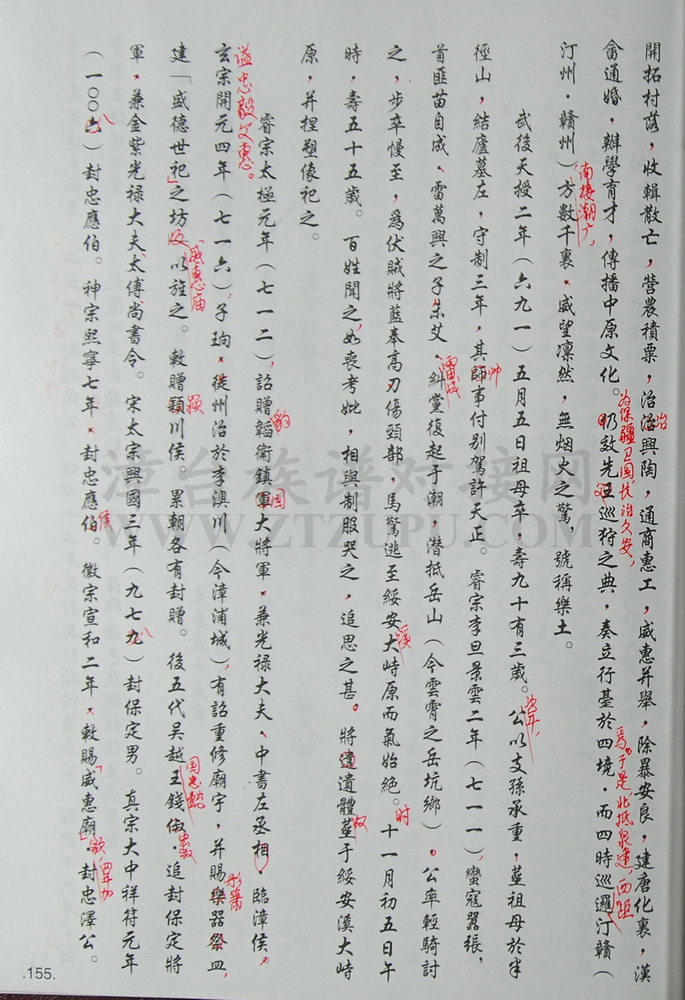 開拓村落，收輯散亡，營農積粟，治鑄興陶，通商惠工，威惠并舉，除暴安良，建唐化裏，漢
畲通婚，辦學育才，傳播中原文化。仍效先王巡狩之典，奏立行臺於四境，而四時巡邏汀贛（
汀州、贛州）方數千裏、威望凜然，無烟火之驚，號稱樂土。
武後天授二年（六九一）五月五日祖母卒，壽九十有三歲。公以支孫承重，塟祖母於半
徑山，結廬墓左，守制三年，其師事付别駕許天正。睿宗李旦景雲二年（七一一），蠻寇嚣張，
首匪苗自成、雷萬興之子朱艾、糾黨復起于潮，潜抵岳山（今雲霄之岳坑鄉）、公率輕騎討
之，步卒慢至，爲伏賊將藍奉高刀傷頸部，馬驚逃至綏安大峙原而氣始絶。十一月初五日午
時，壽五十五歲。百姓聞之，如喪考妣，相與制服哭之，追思之甚。將遺體塟于綏安溪大峙
原，并捏塑像祀之。
睿宗太極元年（七一二），詔贈韜衛鎮軍大將軍、兼光禄大夫、中書左丞相，臨漳侯，
謚忠毅文惠。
玄宗開元四年（七一六），子珦、徙州治於李澳川（今漳浦城），有詔重修廟宇，并賜樂器祭皿，
建「盛德世祀」之坊以旌之。敕贈穎川侯。累朝各有封贈。後五代吴越王錢俶、追封保定將
軍、兼金紫光禄大夫、太傅尚書令。宋太宗興國三年（九七九）封保定男。真宗大中祥符元年
（一〇〇六）封忠應伯。神宗熙寧七年、封忠應伯。徽宗宣和二年、敕賜「威惠廟」、封忠澤公。
南接潮廣，
为保疆卫国，长治久安，
焉。于是，北抵泉建，西距
次年，
帅
溪
时
豹
国
威惠庙
八
侯
漳台族谱对接网
WWW.ZTZUPU.COM
.155.